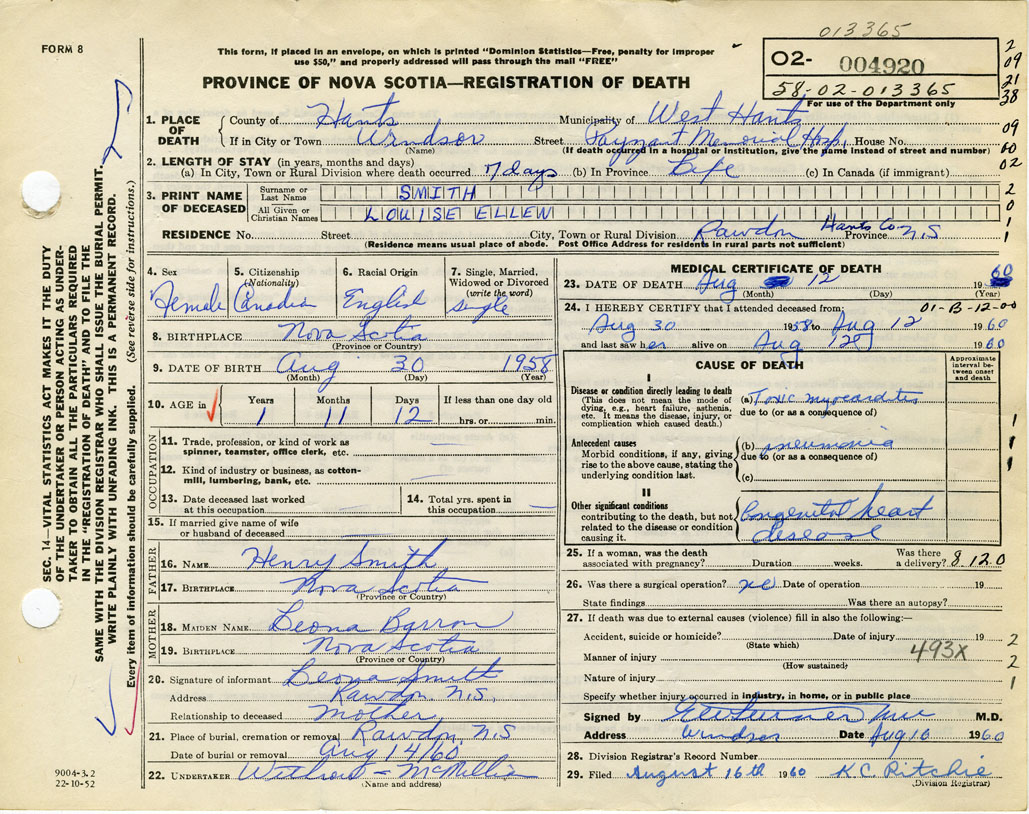 013365
FORM 8
This form, if placed in an envelope, on which is printed "Dominion Statistics—Free, penalty for improper
use $50," and properly addressed will pass through the mail "FREE"
PROVINCE OF NOVA SCOTIA—REGISTRATION OF DEATH
02- 004920
58-02-013365
For use of the Department only
2
09
21
38
09
60
02
2
0
1
1
SEC. 14—VITAL STATISTICS ACT MAKES IT THE DUTY
OF THE UNDERTAKER OR PERSON ACTING AS UNDER-
TAKER TO OBTAIN ALL THE PARTICULARS REQUIRED
IN THE "REGISTRATION OF DEATH" AND TO FILE THE
SAME WITH THE DIVISION REGISTRAR WHO SHALL ISSUE THE BURIAL PERMIT.
WRITE PLAINLY WITH UNFADING INK. THIS IS A PERMANENT RECORD.
Every item of information should be carefully supplied. (See reverse side for instructions.)
1. PLACE OF DEATH County of Hants Municipality of West Hants
If in City or Town Windsor Street Payzant Memorial Hosp. House No.
(Name) (If death occurred in a hospital or institution, give the name instead of street and number)
2. LENGTH OF STAY (in years, months and days)
(a) In City, Town or Rural Division where death occurred 17 days (b) In Province Life (c) In Canada (if immigrant)
3. PRINT NAME OF DECEASED Surname or Last Name SMITH
All Given or Christian Names LOUISE ELLEN
RESIDENCE No. Street City, Town or Rural Division Rawdon Hants Co Province N.S
(Residence means usual place of abode. Post Office Address for residents in rural parts not sufficient)
4. Sex Female
5. Citizenship (Nationality) Canadian
6. Racial Origin English
7. Single, Married, Widowed or Divorced (write the word) single
8. BIRTHPLACE Nova Scotia
(Province or Country)
9. DATE OF BIRTH Aug 30 1958
(Month) (Day) (Year)
10. AGE in Years Months Days If less than one day old
1 11 12 hrs. or min.
OCCUPATION
11. Trade, profession, or kind of work as
spinner, teamster, office clerk, etc.
12. Kind of industry or business, as cotton-
mill, lumbering, bank, etc.
13. Date deceased last worked
at this occupation
14. Total yrs. spent in
this occupation
15. If married give name of wife
or husband of deceased
FATHER
16. NAME Henry Smith
17. BIRTHPLACE Nova Scotia
(Province or Country)
MOTHER
18. MAIDEN NAME Leona Barron
19. BIRTHPLACE Nova Scotia
(Province or Country)
20. Signature of informant Leona Smith
Address Rawdon N.S.
Relationship to deceased Mother
21. Place of burial, cremation or removal Rawdon, N.S
Date of burial or removal Aug 14/60
22. UNDERTAKER
(Name and address)
9004-3.2
22-10-52
MEDICAL CERTIFICATE OF DEATH
23. DATE OF DEATH Aug 12 1960
(Month) (Day) (Year)
24. I HEREBY CERTIFY that I attended deceased from: 01-B-12-00
Aug 30 1958 to Aug 12 1960
and last saw her alive on Aug 12 1960
CAUSE OF DEATH
Approximate interval between onset and death
I
Disease or condition directly leading to death
(This does not mean the mode of
dying, e.g., heart failure, asthenia,
etc. It means the disease, injury, or
complication which caused death.)
(a) Toxic myocarditis
due to (or as a consequence of)
Antecedent causes
Morbid conditions, if any, giving
rise to the above cause, stating the
underlying condition last.
(b) pneumonia
due to (or as a consequence of)
(c)
1
1
1
II
Other significant conditions
contributing to the death, but not
related to the disease or condition
causing it.
Congenital heart
disease
25. If a woman, was the death
associated with pregnancy? Duration weeks. Was there
a delivery? 8 12 0
26. Was there a surgical operation? no Date of operation 19
State findings Was there an autopsy?
27. If death was due to external causes (violence) fill in also the following:—
Accident, suicide or homicide? Date of injury 19
(State which)
Manner of injury 493X
(How sustained)
Nature of injury
Specify whether injury occurred in industry, in home, or in public place
2
2
1
Signed by M.D.
Address Windsor Date Aug 16 1960
28. Division Registrar's Record Number
29. Filed August 16th 1960 K.C. Ritchie
(Division Registrar)